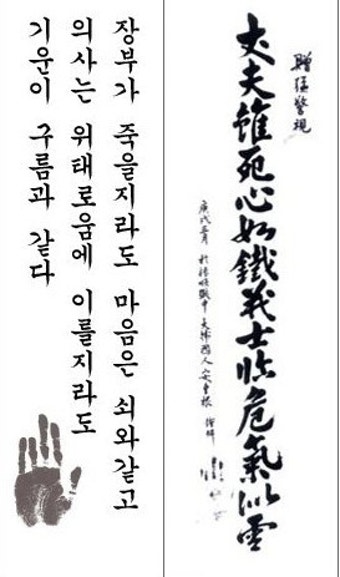 贈猛警視
丈夫雖死心如鐵義士臨危氣似雲
庚戌三月 於旅順獄中 大韓國人 安重根 謹拜
장부가 죽을지라도 마음은 쇠와같고
의사는 위태로움에 이를지라도
기운이 구름과 같다